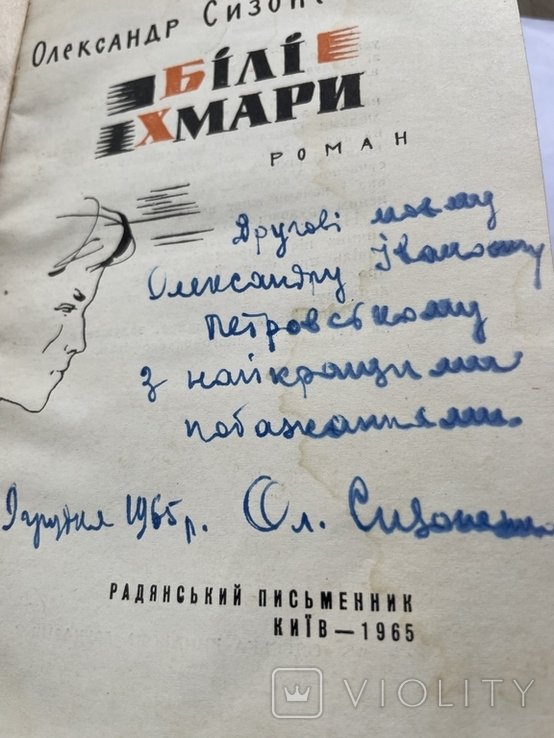 Олександр Сизоне
БІЛІ
ХМАРИ
РОМАН
Другові моєму
Олександру Івановичу
Петровському
з найкращими
побажаннями.
9 грудня 1965 р. Ол. Сизоненко
РАДЯНСЬКИЙ ПИСЬМЕННИК
КИЇВ — 1965
VIOLITY